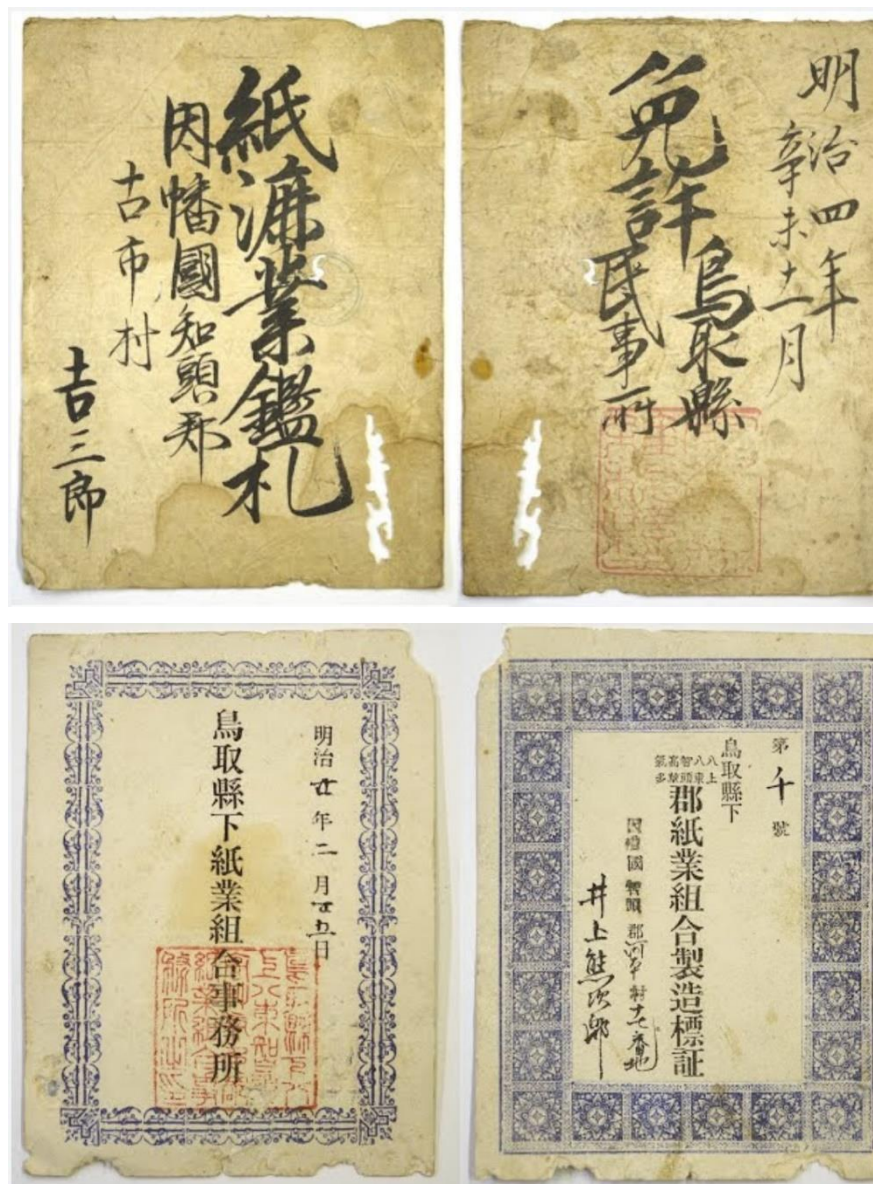 紙漉業鑑札
因幡國知頭郡
古市村
吉三郎
明治四年
辛未十一月
免許
鳥取縣
民事所
明治廿年二月廿五日
鳥取縣下紙業組合事務所
第千號
鳥取縣下
八上八東智頭高草氣多郡紙業組合製造標証
因幡國智頭郡村十七番地
井上熊次郎